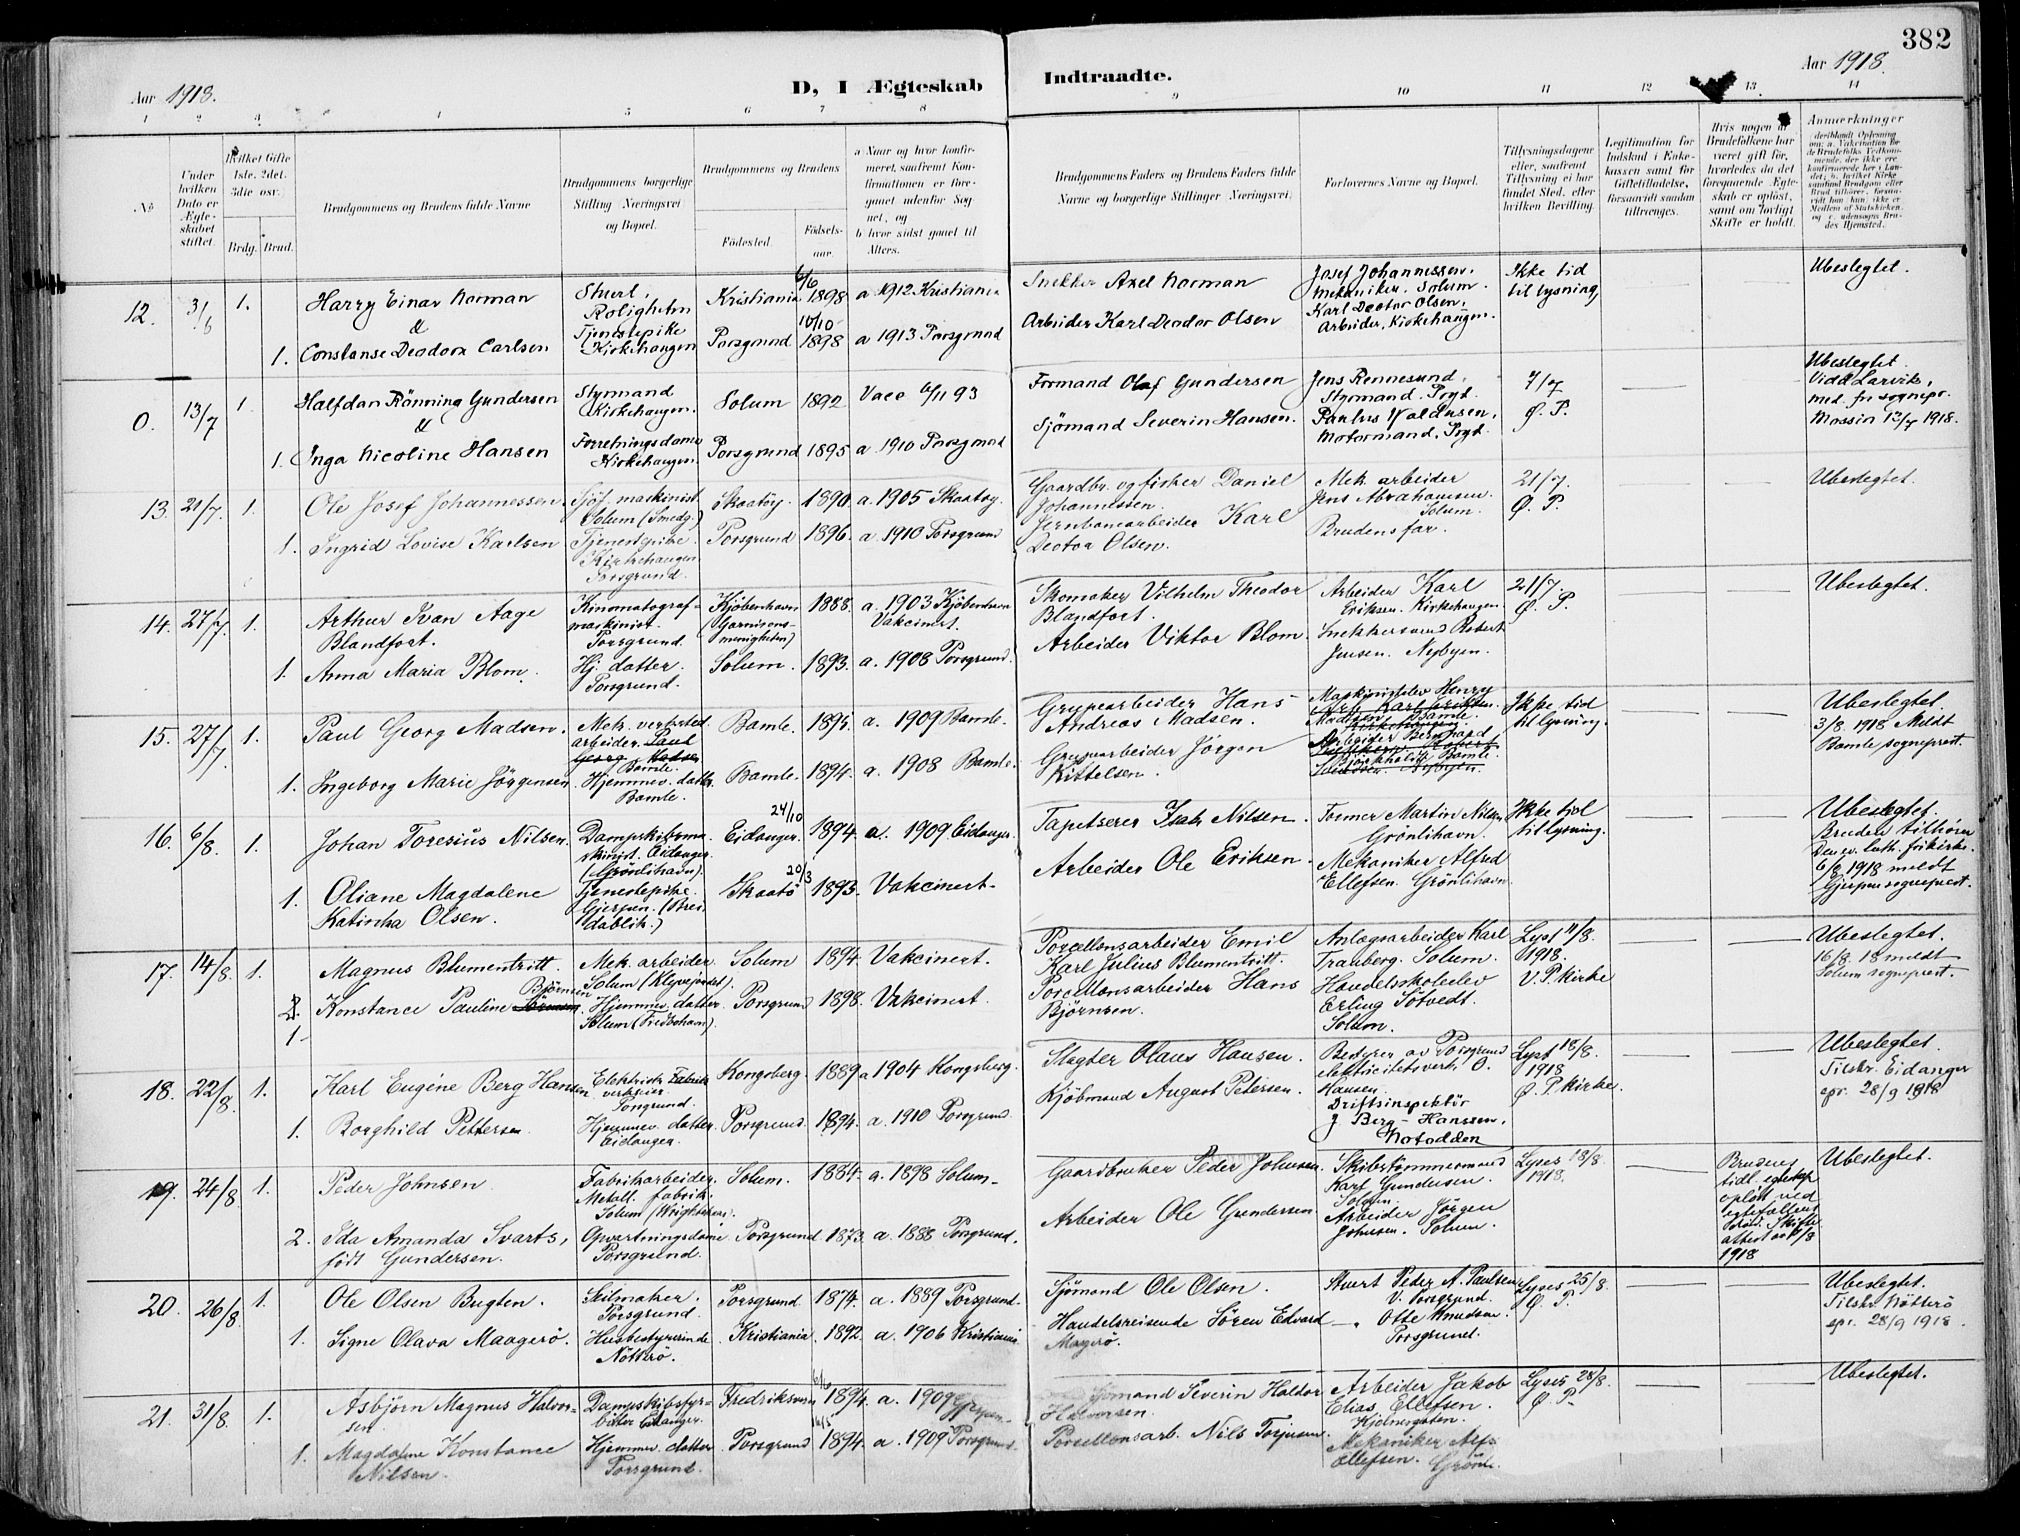 382
Aar 1918.
D, I Ægteskab Indtraadte.
Aar 1918.
1 2 3 4 5 6 7 8 9 10 11 12 13 14
No
Under hvilken Dato er Ægteskabet stiftet.
Hvilket Gifte 1ste, 2det, 3die osv.)
Brdg. Brud.
Brudgommens og Brudens fulde Navne
Brudgommens borgerlige Stilling Næringsvei og Bopæl.
Brudgommens og Brudens
Fødested. Fødselsaar.
a Naar og hvor konfirmeret, saafremt Konfirmationen er foregaaet udenfor Sognet, og
b hvor sidst gaaet til Alters.
Brudgommens Faders og Brudens Faders fulde Navne og borgerlige Stillinger Næringsvei.
Forlovernes Navne og Bopæl.
Tillysningsdagene eller, saafremt Tillysning ei har fundet Sted, efter hvilken Bevilling.
Legitimation for Indskud i Enkekassen samt for Giftetilladelse, forsaavidt saadan tiltrænges.
Hvis nogen af Brudefolkene har været gift før, hvorledes da det foregaaende Ægteskab er opløst, samt om lovligt Skifte er holdt.
Anmærkninger
12. 3/6 1. Harry Einar Norman Stuert, Roligheten Kristiania 6/6 1898 a 1912 Kristiania Snekker Axel Norman Josef Johannessen, Mekaniker. Solum. Ikke tid til lysning, Ubeslegtet.
&
1. Constanse Deodora Carlsen Tjenestepike Kirkehaugen Porsgrund 10/10 1898 a 1913 Porsgrund Arbeider Karl Deodor Olsen Karl Deotor Olsen, Arbeider, Kirkehaugen.
0. 13/7 1. Halfdan Rönning Gundersen Styrmand Kirkehaugen. Solum 1892 Vacc 6/11 93 Formand Olaf Gundersen Jens Rennesund, Styrmand. Prgd. 7/7 Ø. P. Ubeslegtet. Viddl Larvik, med. fr. sognepr. Mossin 13/7 1918.
&
1. Inga Nicoline Hansen Forretningsdame Kirkehaugen. Porsgrund 1895 a 1910 Porsgrund Sjömand Severin Hansen. Paulus Valdusen, Motormand, Prgd.
13. 21/7. 1. Ole Josef Johannessen Sjöf. maskinist Solum (Smedg.) Skaatöy. 1890. a. 1905 Skaatöy. Gaardbr. og fisher Daniel Johannessen. Mek. arbeider Jens Abrahamsen. Solum. 21/7. Ø. P. Ubeslegtet.
1. Ingrid Lovise Karlsen Tjenestepike. Kirkehaugen Porsgrund. Porsgrund 1896. a. 1910 Porsgrund Jernbanearbeider Karl Deotor Olsen. Brudens far.
14. 27/7. 1. Arthur Ivan Aage Blandfort. Kinomatografmaskinist. Porsgrund. Kjöbenhavn (Garnisonsmenigheten) 1888. a. 1903 Kjöbenhavn Vakcinert. Skomaker Vilhelm Theodor Blandfort. Arbeider Karl Eriksen. Kirkehaugen. 21/7. Ø. P. Ubeslegtet.
1. Anna Maria Blom. Hj. datter. Porsgrund. Solum. 1893. a. 1908 Porsgrund. Arbeider Viktor Blom. Snekkersvend Robert Jensen. Nybyen.
15. 27/7. 1. Paul Georg Madsen. Mek. verksted arbeider. Bamle. Bamle. 1895. a. 1909 Bamle. Grupearbeider Hans Andreas Madsen. Maskinistelev Henry Madsen. Bamle. Ikke tid til lysning. Ubeslegtet. 3/8. 1918 Meldt Bamle sogneprest.
1. Ingeborg Marie Jörgensen. Hjemmev. datter. Bamle. Bamle. 1894. a. 1908 Bamle. Grupearbeider Jörgen Kittelsen. Arbeider Bernhard Björkholdt Bamle.
16. 6/8. 1. Johan Toresius Nilsen. Dampskibsmaskinist. Eidanger. (Grönlihavn). Eidanger. 24/10 1894. a. 1909 Eidanger. Tapetserer Isak Nilsen. Former Martin Nilsen Grönlihavn. Ikke tid til lysning. Ubeslegtet. Bruden tilhörer Den ev. luth. frikirke. 6/8 1918 meldt Gjerpen sogneprest.
1. Oliane Magdalene Katinka Olsen. Tjenestepike. Gjerpen. (Breidablik.) Skaatö 20/3 1893. Vakcinert. Arbeider Ole Eriksen. Mekaniker Alfred Ellefsen. Grönlihavn.
17. 14/8. 1. Magnus Blumentritt. Mek. arbeider. Solum (Klyvejordet). Solum 1894. Vakcinert. Porcellænsarbeider Emil Karl Julius Blumentritt. Anlægsarbeider Karl Tranberg. Solum. Lyst 11/8. 1918. V. P. kirke Ubeslegtet. 16/8. 18 meldt Solum sogneprest.
1. Konstance Pauline Björnsen Hjemmev. datter. Solum (Fredbohavn). Porsgrund 1898. Vakcinert. Porcellænsarbeider Hans Björnsen. Handelsskoleelev Erling Sötvedt. Solum.
18. 22/8. 1. Karl Eugéne Berg Hansen Elektrisk Fabrik verkeier. Porsgrund. Kongsberg. 1889 a 1904 Kongsberg. Slagter Olaus Hansen. Bestyrer av Porsgrund elektricitetsverk, O. Hansen Lyst 18/8. 1918 Ø. P. kirke. Ubeslegtet. Tilskr. Eidanger spr. 28/9 1918
1. Borghild Pettersen. Hjemmev. datter. Eidanger. Porsgrund. 1894. a. 1910 Porsgrund. Kjöbmand August Petersen. Driftsinspektör J Berg-Hanssen, Notodden
19. 24/8. 1. Peder Johnsen. Fabrikarbeider. Metall. fabrik. Solum. 1884. a. 1898 Solum. Gaardbruker Peder Johnsen. Skibstömmermand Karl Gundersen. Solum. Lyses 18/8. 1918. Brudens tidl. egteskap oplöst ved egtefællens död. Skifteattest av 1918 Ubeslegtet.
2. Ida Amanda Svarts, födt Gundersen. Opvartningsdame Porsgrund. Porsgrund 1873. a. 1888 Porsgrund. Arbeider Ole Gundersen Arbeider Jörgen Johnsen. Solum.
20. 26/8. 1. Ole Olsen Bugten. Seilmaker. Porsgrund. Porsgrund 1874. a. 1889 Porsgrund. Sjömand Ole Olsen. Stuert Peder A. Paulsen V. Porsgrund. Lyses 25/8. Ø. P. Ubeslegtet. Tilskr. Nötterö spr. 28/9 1918.
1. Signe Olava Maagerö. Husbestyrerinde Nötterö. Kristiania. 1892. a. 1906 Kristiania Handelsreisende Sören Edvard Magerö. Otto Knudsen. Porsgrund.
21. 31/8. 1. Asbjörn Magnus Halvorsen. Dampskibsfyrböter Eidanger. Fredriksværn 6/6 1894. a. 1909 Gjerpen. Sjömand Severin Haldor Halvorsen. Arbeider Jakob Elias Ellefsen. Lyses 28/8. Ø. P. Ubeslegtet.
1. Magdalene Konstance Nilsen. Hjemmev. datter Porsgrund. Porsgrund 1894. a. 1909 Porsgrund. Porcellænsarb. Nils Torjusen. Mekaniker Alf. Ellefsen. Grönli.